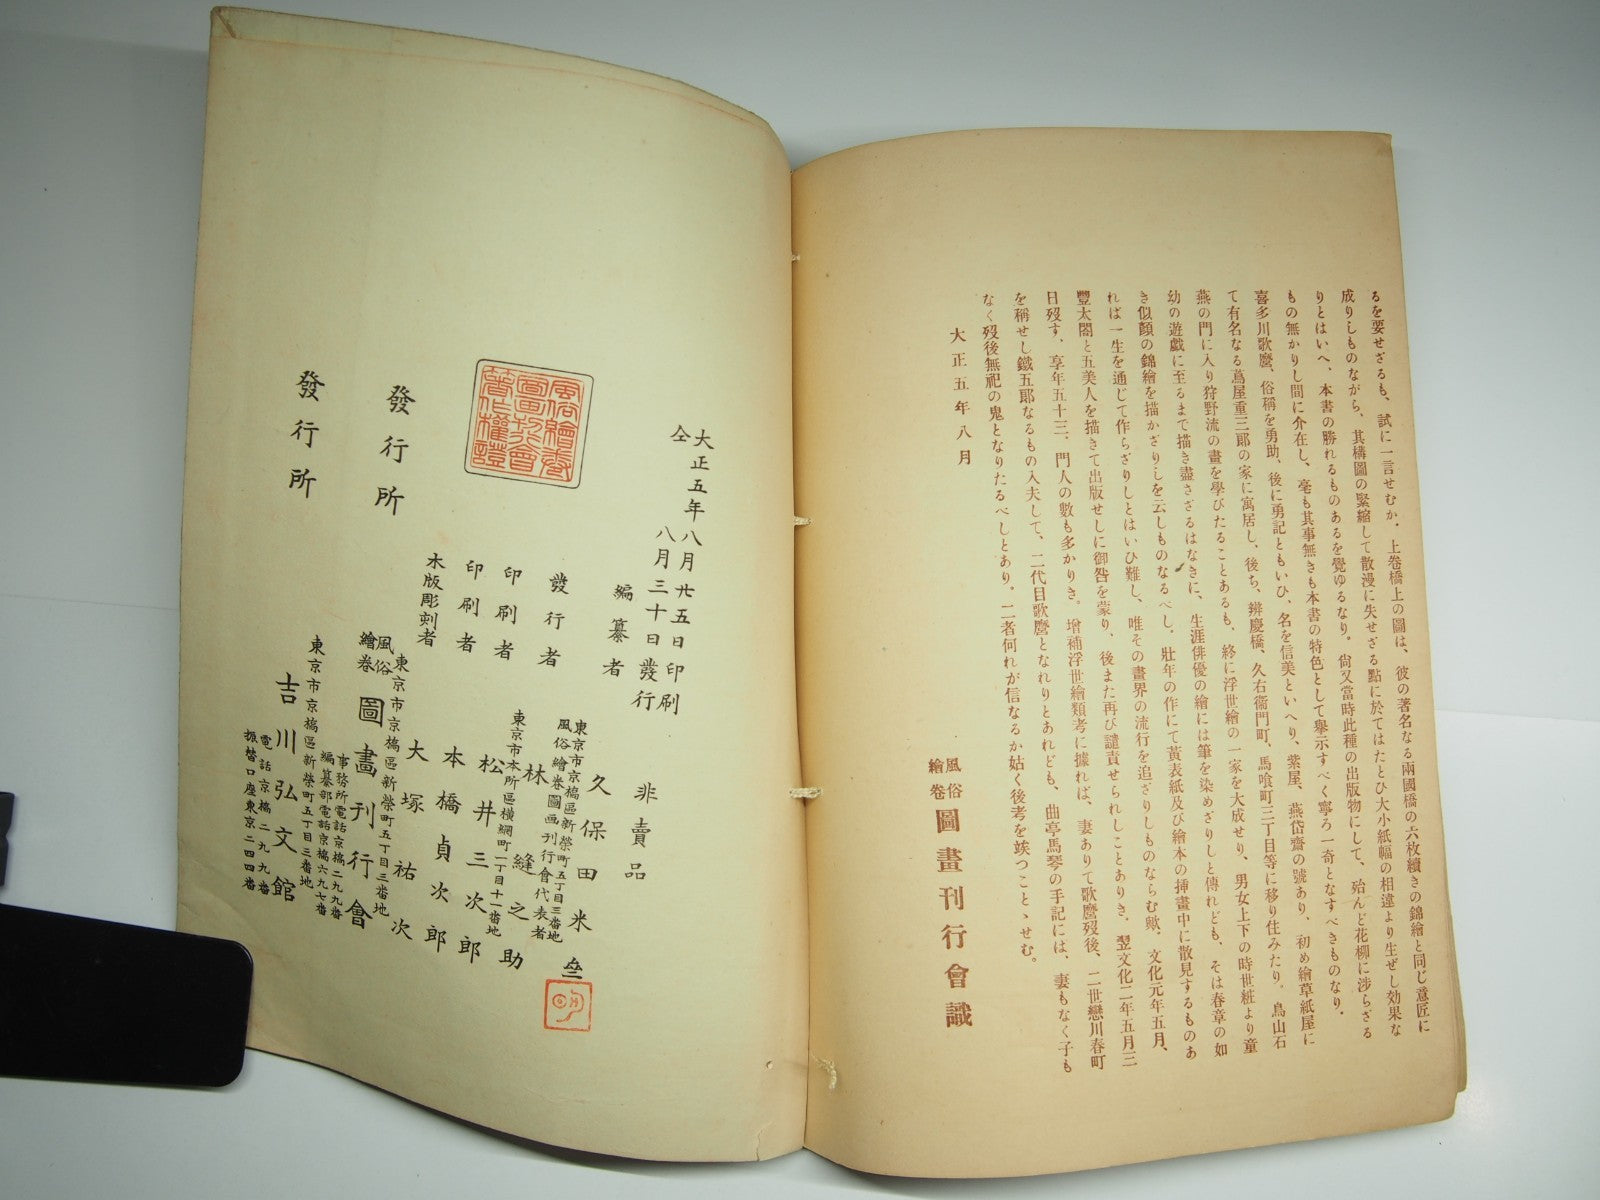 るを要せざるも、試に一言せむか、上卷橋上の圖は、彼の著名なる兩國橋の六枚續きの錦繪と同じ意匠に
成りしものながら、其構圖の緊縮して散漫に失せざる點に於てはたとひ大小紙幅の相違より生ぜし効果な
りとはいへ、本書の勝れるものあるを覺ゆるなり。尙又當時此種の出版物にして、殆んど花柳に涉らざる
もの無かりし間に介在し、毫も其事無きも本書の特色として擧示すべく寧ろ一奇となすべきものなり。
喜多川歌麿、俗稱を勇助、後に勇記ともいひ、名を信美といへり、紫屋、燕岱齋の號あり、初め繪草紙屋に
て有名なる蔦屋重三郎の家に寓居し、後ち、辨慶橋、久右衞門町、馬喰町三丁目等に移り住みたり。鳥山石
燕の門に入り狩野流の畫を學びたることあるも、終に浮世繪の一家を大成せり、男女上下の時世粧より童
幼の遊戯に至るまで描き盡さざるはなきに、生涯俳優の繪には筆を染めざりしと傳れども、そは春章の如
き似顏の錦繪を描かざりしを云しものなるべし。壯年の作にて黃表紙及び繪本の挿畫中に散見するものあ
れば一生を通じて作らざりしとはいひ難し、唯その畫界の流行を追ざりしものならむ歟。文化元年五月、
豐太閤と五美人を描きて出版せしに御咎を蒙り、後また再び譴責せられしことありき、翌文化二年五月三
日歿す、享年五十三、門人の數も多かりき。增補浮世繪類考に據れば、妻ありて歌麿歿後、二世戀川春町
を稱せし鐵五郎なるもの入夫して、二代目歌麿となれりとあれども、曲亭馬琴の手記には、妻もなく子も
なく歿後無祀の鬼となりたるべしとあり。二者何れが信なるか姑く後考を竢つことゝせむ。
大正五年八月
風俗繪卷圖畫刊行會識
大正五年八月廿五日印刷
仝八月三十日發行
非賣品
編纂者
久保田米齋
東京市京橋區新榮町五丁目三番地
風俗繪卷圖画刊行會代表者
發行者
林縫之助
東京市本所區橫網町一丁目十一番地
印刷者
松井三次郎
印刷者
本橋貞次郎
木版彫刻者
大塚祐次
風俗繪卷圖畫刊行會著作權證
發行所
東京市京橋區新榮町五丁目三番地
風俗繪卷圖畫刊行會
事務所電話京橋二九九番
編纂部電話京橋六九七番
發行所
東京市京橋區新榮町五丁目三番地
吉川弘文館
電話京橋二九九番
振替口座東京二四四番